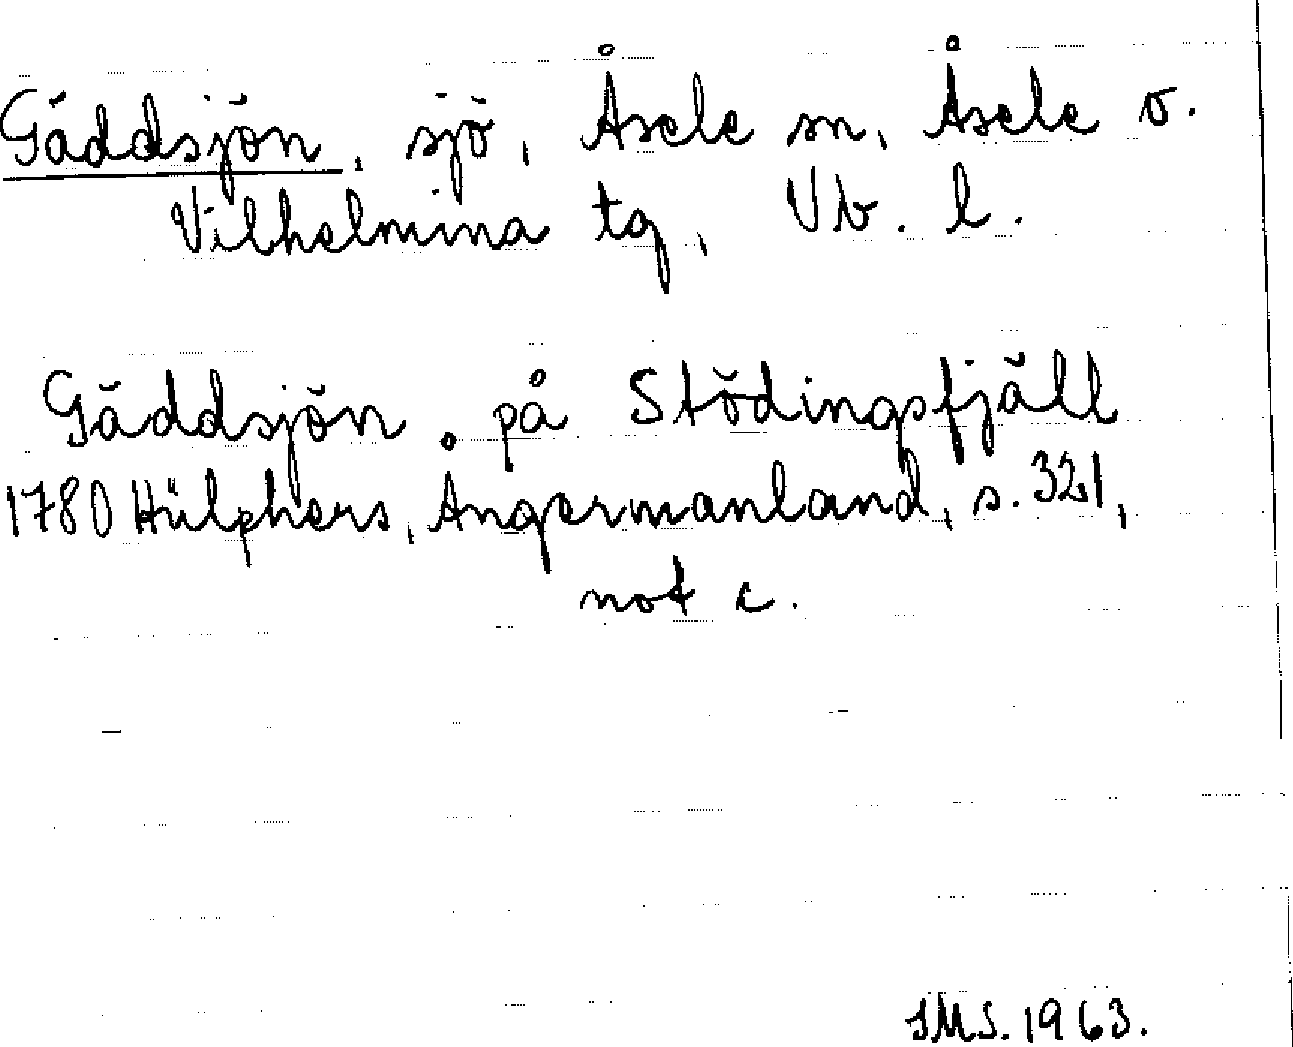 Gäddsjön, sjö, Åsele sn, Åsele o.
Vilhelmina tg, Vb. l.
Gäddsjön på Stödingsfjäll
1780 Hülphers, Ångermanland, s. 321,
not c.
SMS. 1963.